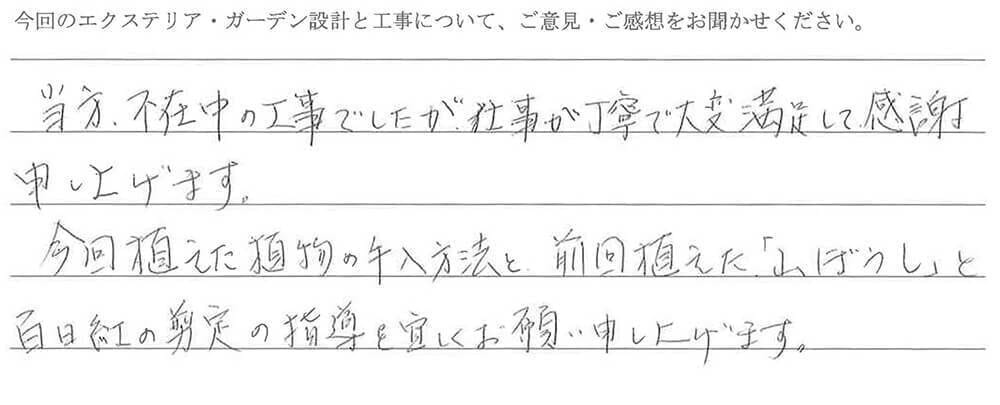 今回のエクステリア・ガーデン設計と工事について、ご意見・ご感想をお聞かせください。
当方、不在中の工事でしたが、仕事が丁寧で大変満足して、感謝
申し上げます。
今回植えた植物の手入方法と、前回植えた「山ぼうし」と
百日紅の剪定の指導を宜しくお願い申し上げます。